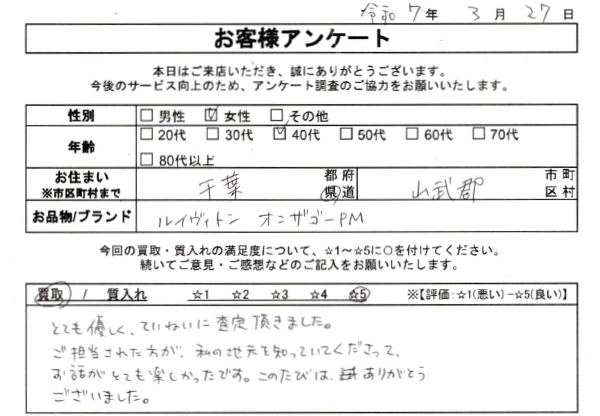 令和 7 年 3 月 27 日
お客様アンケート
本日はご来店いただき、誠にありがとうございます。
今後のサービス向上のため、アンケート調査のご協力をお願いいたします。
性別 □ 男性 ☑ 女性 □ その他
年齢 □ 20代 □ 30代 ☑ 40代 □ 50代 □ 60代 □ 70代
□ 80代以上
お住まい ※市区町村まで 千葉 都 府 県 道 山武郡 市 町 区 村
お品物/ブランド ルイヴィトン オンザゴーPM
今回の買取・質入れの満足度について、☆1～☆5に○を付けてください。
続いてご意見・ご感想などのご記入をお願いいたします。
買取 / 質入れ ☆1 ☆2 ☆3 ☆4 ☆5 ※【評価:☆1(悪い)－☆5(良い)】
とても優しく、ていねいに査定頂きました。
ご担当された方が、私の地元を知っていてくださって、
お話がとても楽しかったです。このたびは、ありがとう
ございました。